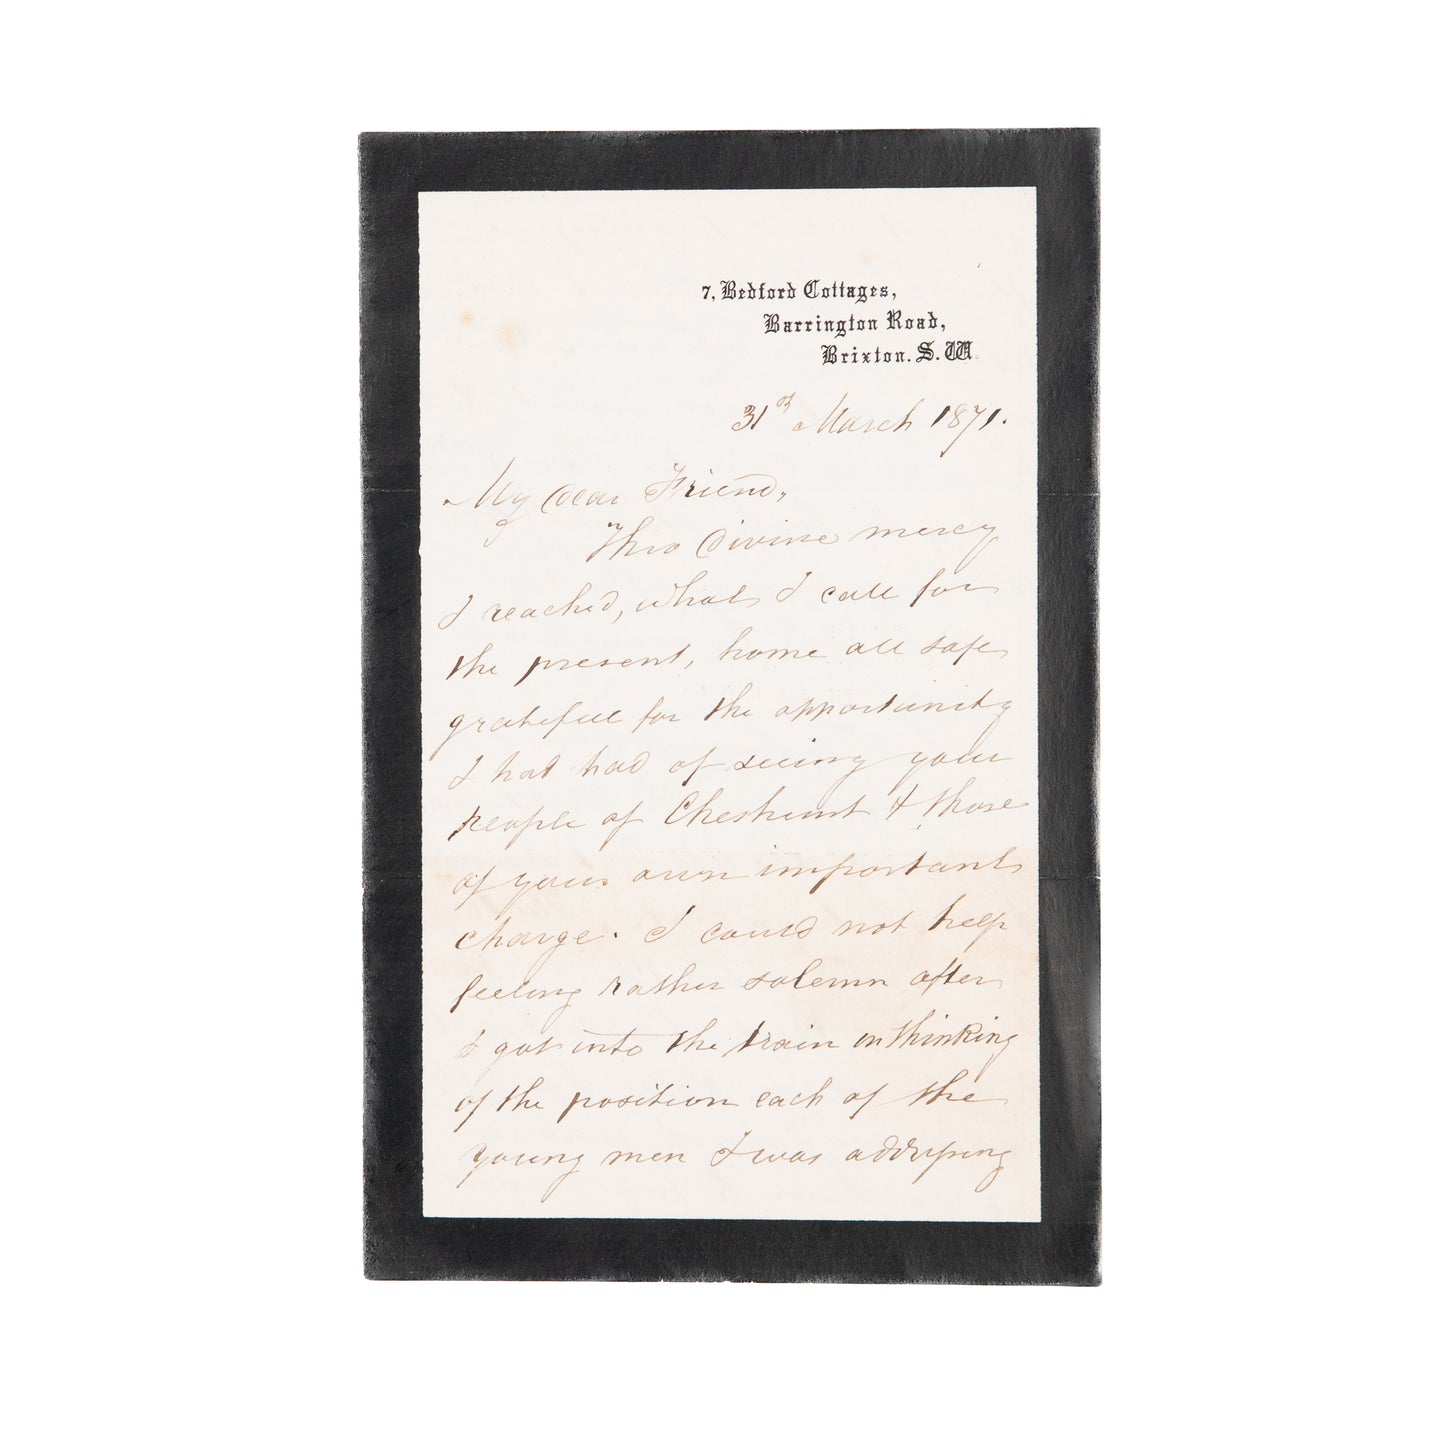 7, Bedford Cottages,
Barrington Road,
Brixton. S. W
31st March 1871.
My dear Friend,
Thro divine mercy
I reached, what I call for
the present, home all safe
grateful for the opportunity
I had had of seeing your
people of Cheshunt & those
of your own important
charge. I could not help
feeling rather solemn after
I got into the train on thinking
of the position each of the
young men I was addressing